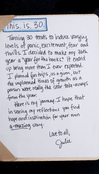 This is 30.
Turning 30 tends to induce varying
levels of panic, excitement, fear and
thrills. I decided to make my 30th
year a "year for the books." It ended
up being more than I ever expected.
I planned for trips, as a given, but
the unplanned kinds of growth as a
person were really the tale tale-always
from the year.
Here is my journey. I hope that
in seeing my reflections, you find
hope and inspiration for your own
Love to all,
Julia